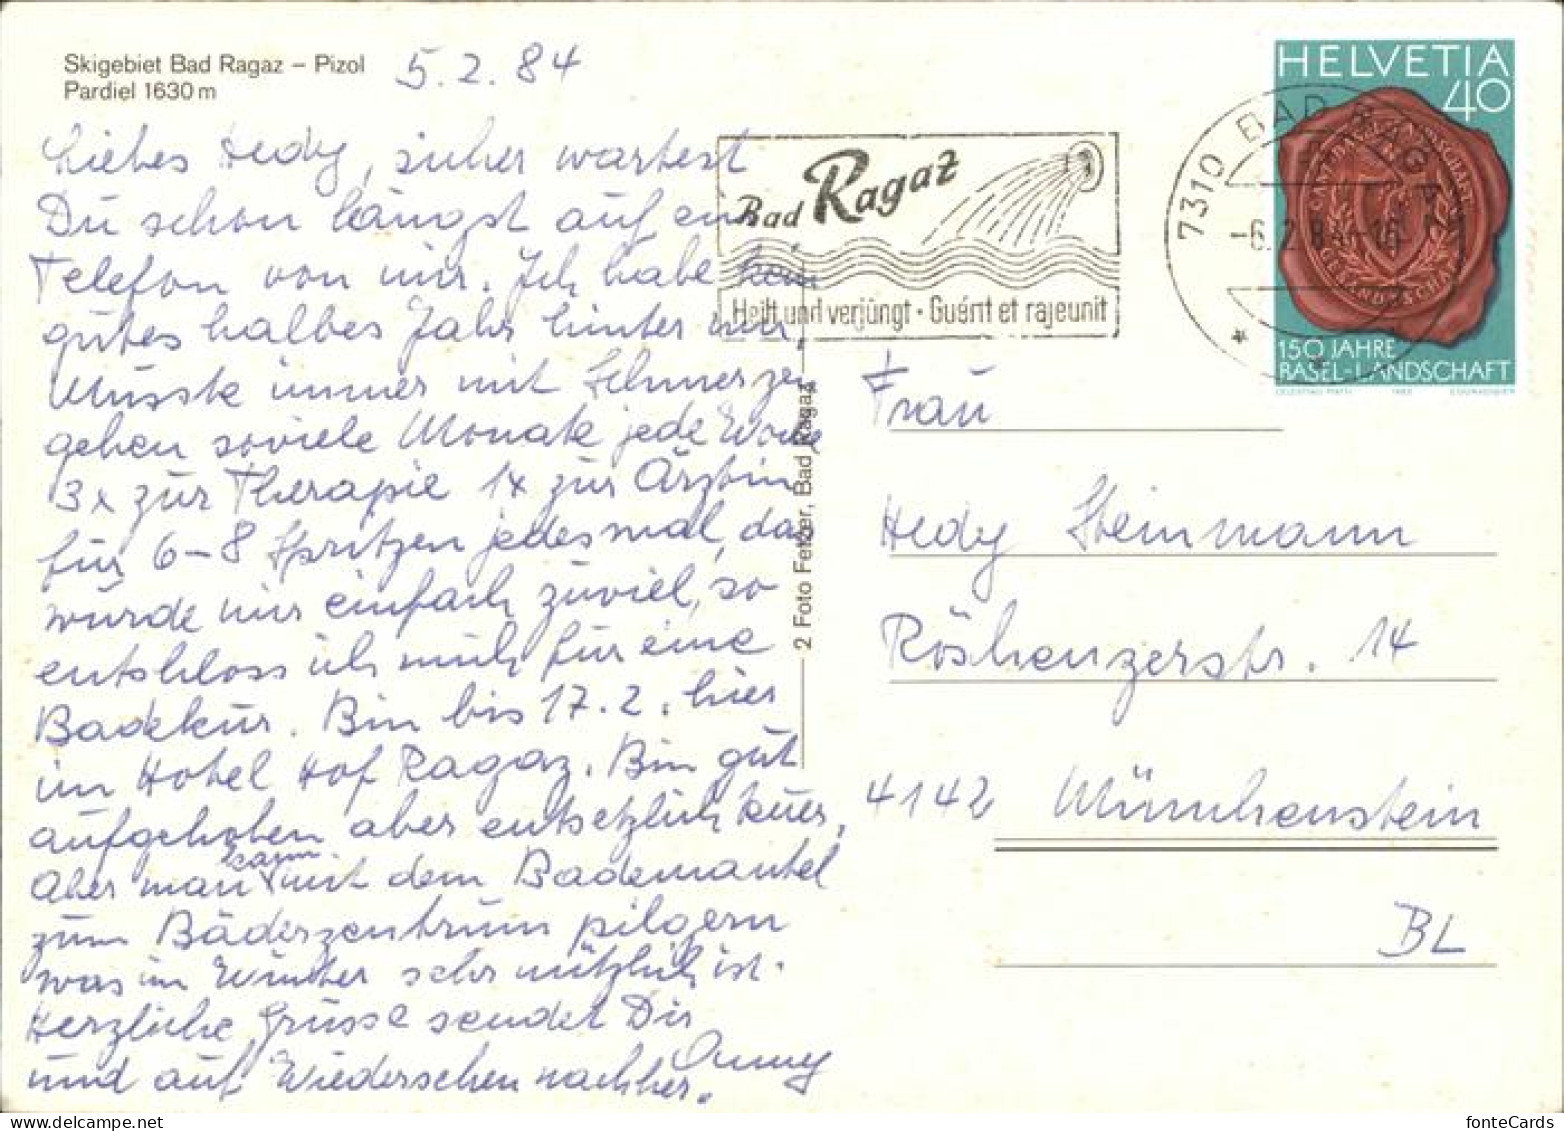 Skigebiet Bad Ragaz – Pizol
Pardiel 1630 m
5.2.84
Liebes Hedy, sicher wartest
Du schon längst auf ein
Telefon von mir. Ich habe kein
gutes halbes Jahr hinter mir,
Musste immer mit Schmerzen
gehen soviele Monate jede Woche
3x zur Therapie 1x zur Ärztin
für 6–8 Spritzen jedesmal, das
würde mir einfach zuviel, so
entschloss ich mich für eine
Badekur. Bin bis 17.2. hier
im Hotel Hof Ragaz. Bin gut
aufgehoben aber entsetzlich teuer,
Aber man kann mit dem Bademantel
zum Bäderzentrum pilgern
was im Winter sehr nützlich ist.
Herzliche Grüsse sendet Dir
und auf Wiedersehen nachher. Anny
2 Foto Fetzer, Bad Ragaz
Bad Ragaz
Heilt und verjüngt • Guérit et rajeunit
7310 BAD RAGAZ
–6.2.84–16
HELVETIA
40
150 JAHRE
BASEL-LANDSCHAFT
Frau
Hedy Steinmann
Röshenzerstr. 14
4142 Münchenstein
BL
fonteCards